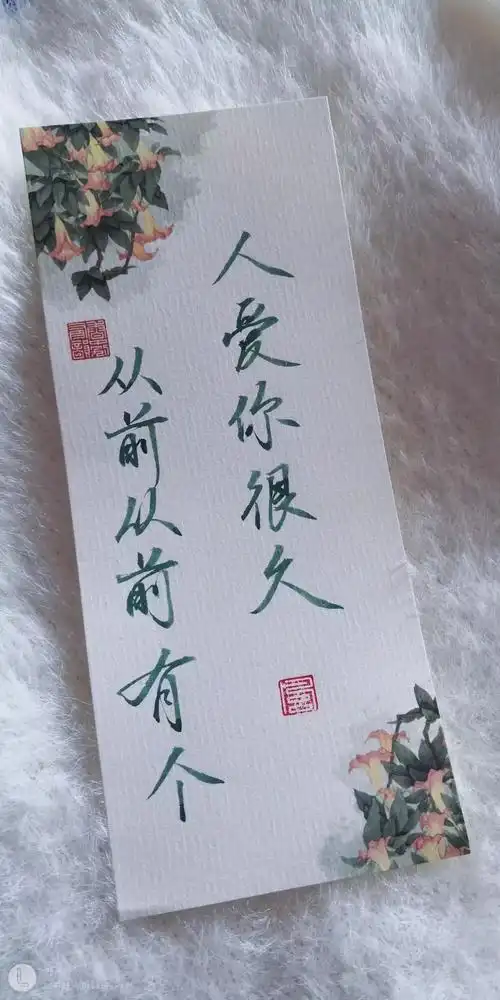 从前从前有个
人爱你很久